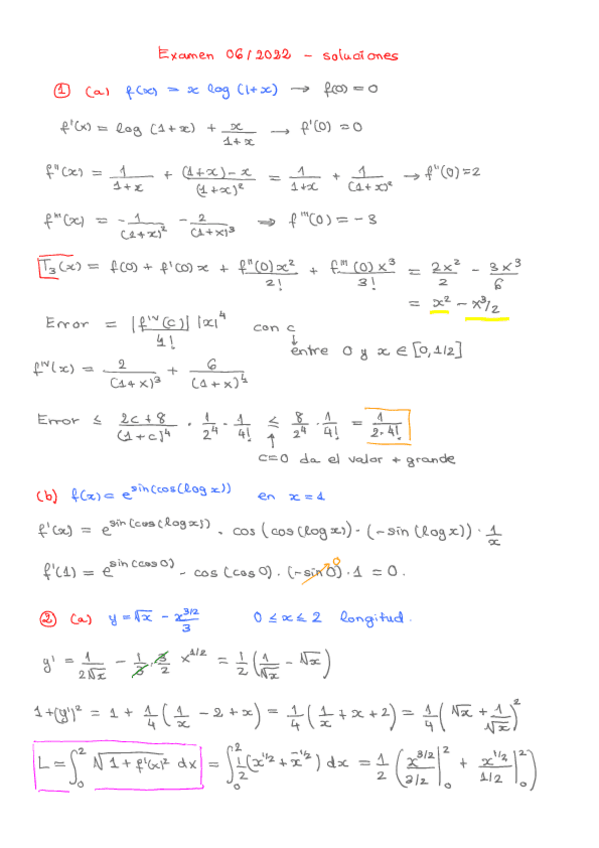 Examen 06/2022 - soluciones
① (a) f(x) = x log (1+x) → f(0) = 0
f'(x) = log (1+x) + x/(1+x) → f'(0) = 0
f''(x) = 1/(1+x) + ((1+x)-x)/(1+x)² = 1/(1+x) + 1/(1+x)² → f''(0) = 2
f'''(x) = -1/(1+x)² - 2/(1+x)³ ⇒ f'''(0) = -3
T₃(x) = f(0) + f'(0)x + f''(0)x²/2! + f'''(0)x³/3! = 2x²/2 - 3x³/6
= x² - x³/2
Error = |f^IV(c)|/4! |x|⁴ con c
↓
entre 0 y x ∈ [0,1/2]
f^IV(x) = 2/(1+x)³ + 6/(1+x)⁴
Error ≤ (2c+8)/(1+c)⁴ · 1/2⁴ · 1/4! ≤ 8/2⁴ · 1/4! = 1/(2·4!)
↑
c=0 da el valor + grande
(b) f(x) = e^sin(cos(log x)) en x=1
f'(x) = e^sin(cos(log x)) · cos(cos(log x)) · (-sin(log x)) · 1/x
f'(1) = e^sin(cos 0) · cos(cos 0) · (-sin 0) · 1 = 0. 0
② (a) y = √x - x^3/2/3 0 ≤ x ≤ 2 longitud.
y' = 1/(2√x) - 1/3 · 3/2 x^1/2 = 1/2 (1/√x - √x)
1+(y')² = 1 + 1/4 (1/x - 2 + x) = 1/4 (1/x + x + 2) = 1/4 (√x + 1/√x)²
L = ∫₀² √(1+f'(x)²) dx = ∫₀² 1/2 (x^1/2 + x^-1/2) dx = 1/2 (x^3/2/(3/2) |₀² + x^1/2/(1/2) |₀²)